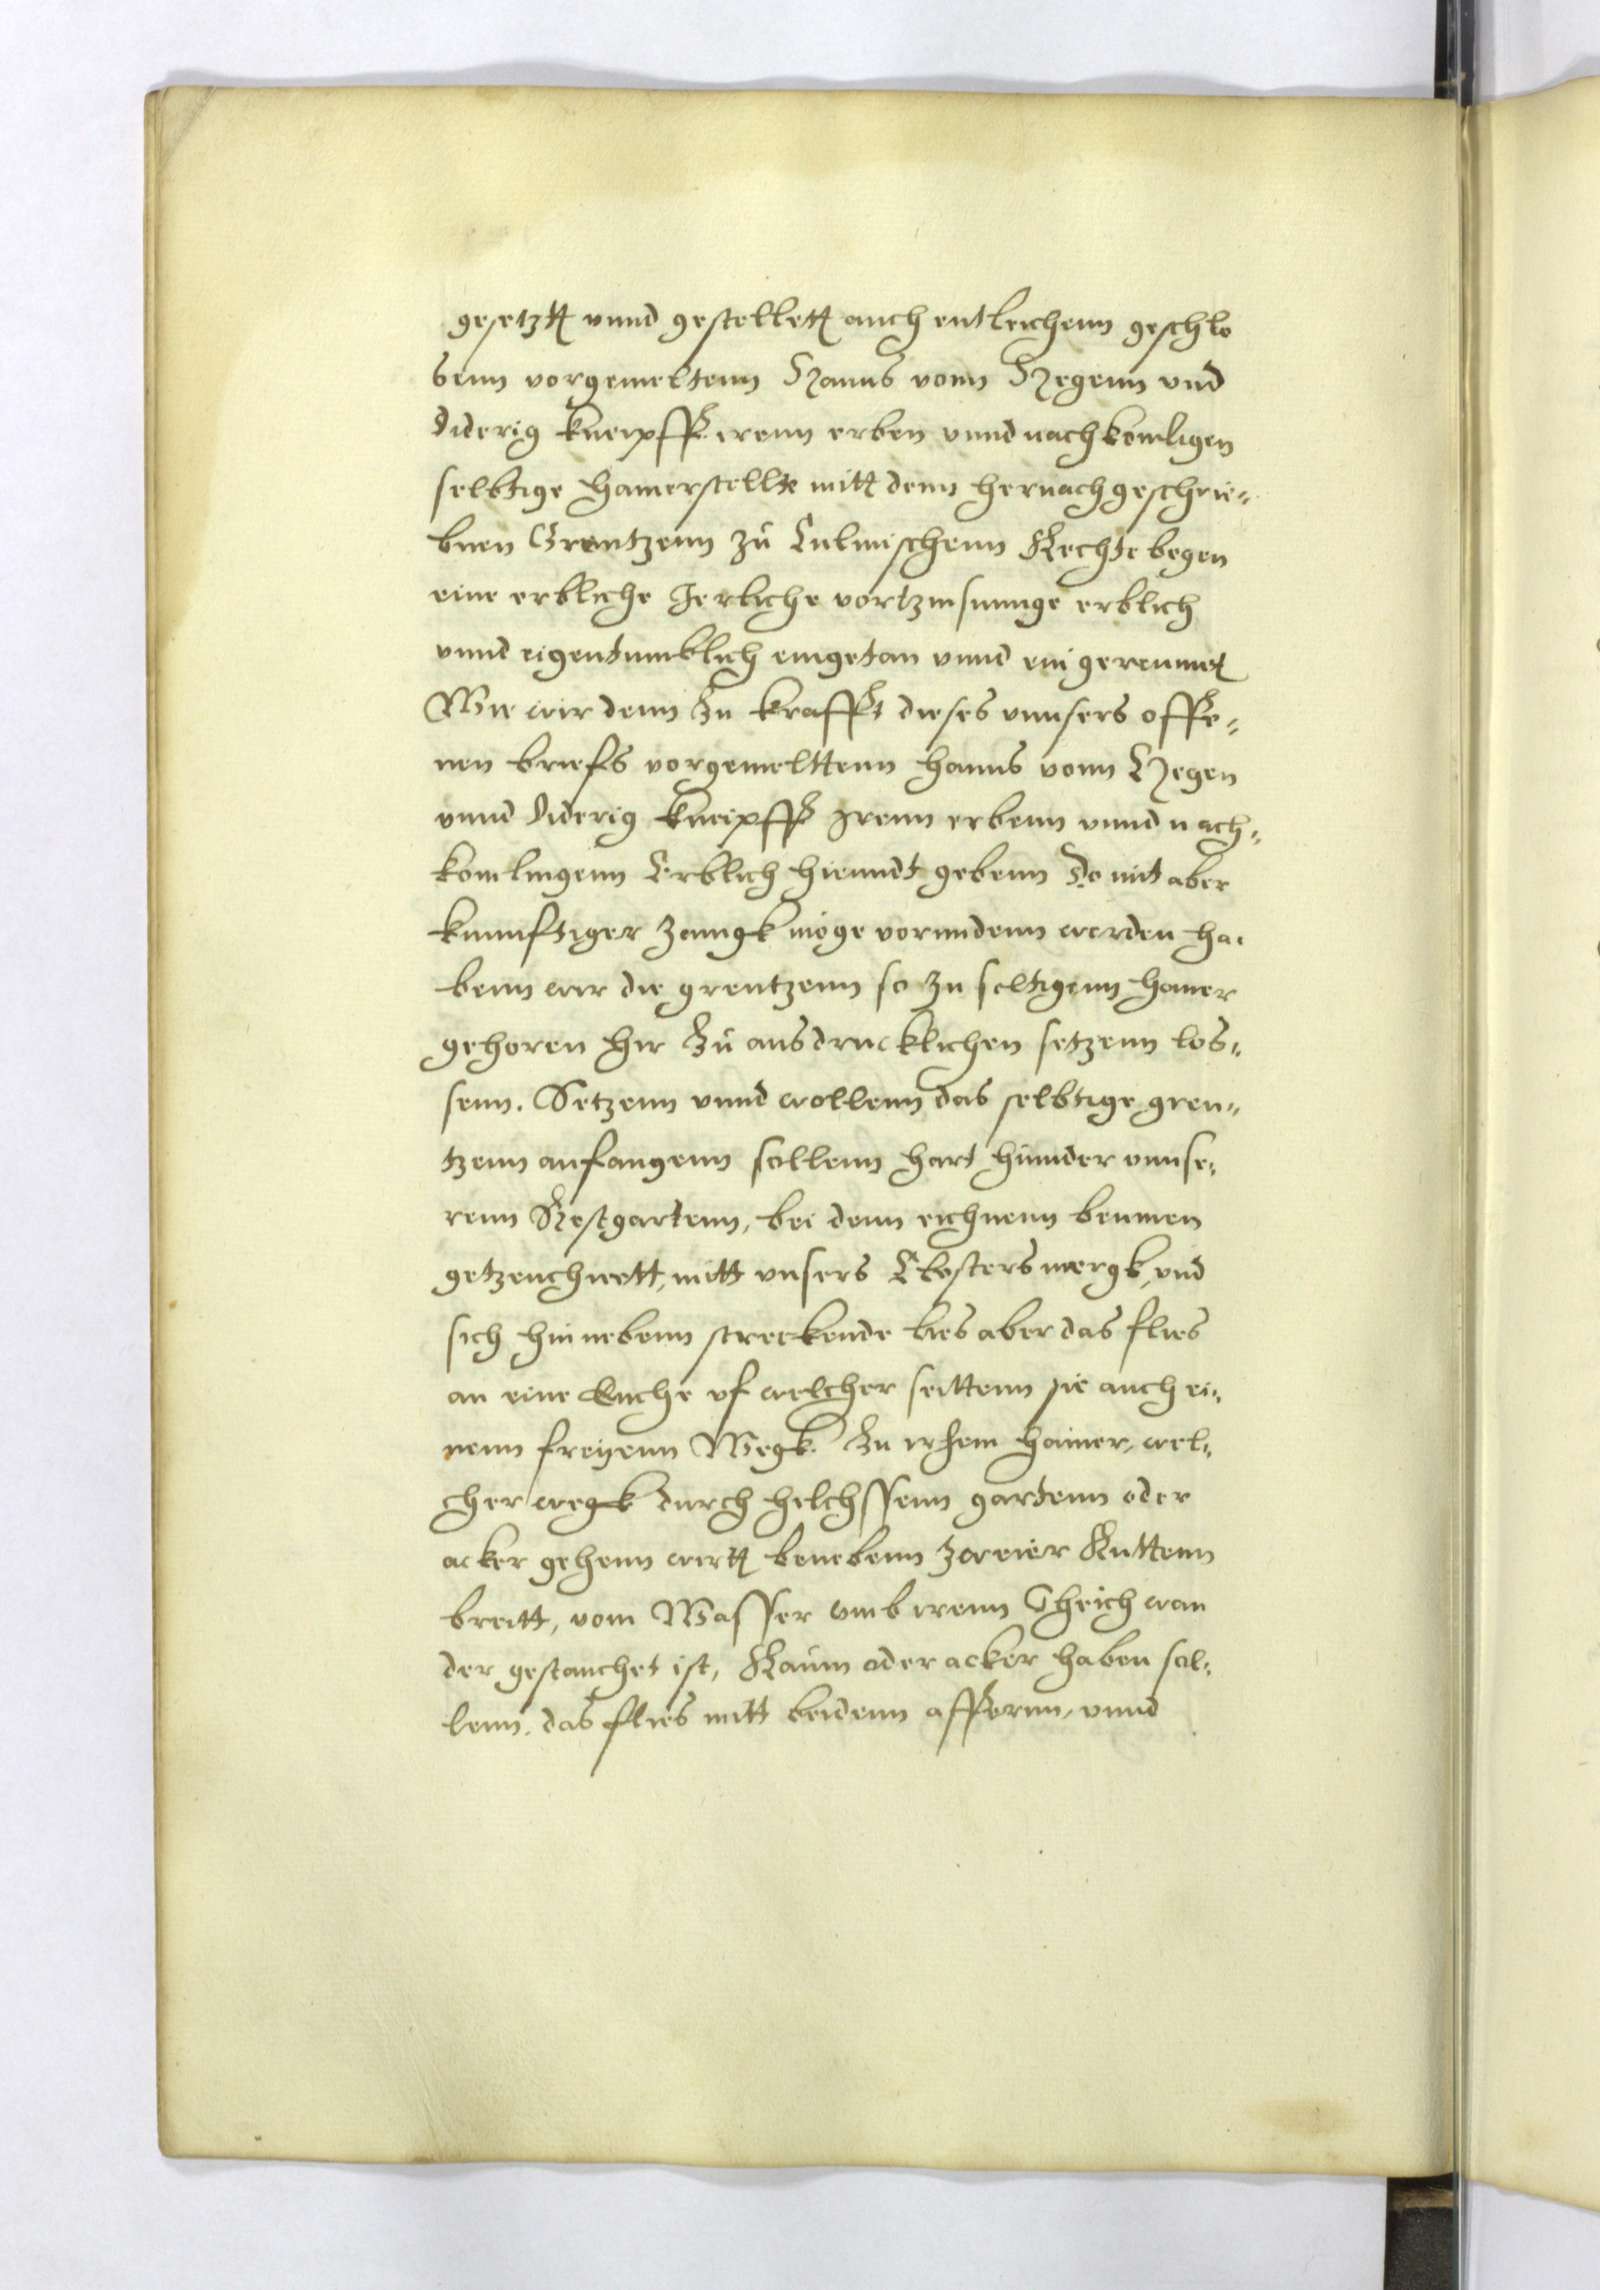 gesetzt vnnd gestellett auch entleichenn geschlo
senn vorgemeltenn Hanns vonn Hegenn vnd
Diderig Kneipff irenn erben vnnd nachkomligen
selbtige hamerstellte mitt denn hernachgeschrie-
bnen Grentzenn zu Culmischenn Rechte kegen
eine erbliche Jerliche vortzinsunnge erblich
vnnd eigentumblich eingetan vnnd eingereumet
Wie wir denn In krafft dieses vnnsers offe-
nen briefs vorgemelttenn hanns vonn Hegen
vnnd Diderig Kneipff Irenn erbenn vnnd nach-
komlingenn Erblich hiemidt gebenn Do mit aber
kunnftiger zanngk möge vormidenn werden ha-
benn wir die grentzenn so zu seltigenn hamer
gehoren hir In ausdrucklichen setzenn los-
senn. Setzenn vnnd wollenn das selbtige gren-
tzenn anfangenn sollenn hart hinnder vnnse-
renn Restgartenn, bei denn eichnenn beumen
getzeuchnett, mitt vnsers Closters mergk, vnd
sich hinnebenn streckende bies aber das flies
an eine Buche vf welcher seittenn sie auch ei-
nenn freyenn Wegk Zu irhem hamer, wel-
cher wegk durch hilchssenn gartenn oder
acker gehenn wirtt benebenn zweier Ruttenn
breitt, vom Wasser vmb irenn Theich wan
der gestauchet ist, Raum oder acker haben sol-
lenn. das flies mitt beidenn affernn, vnnd